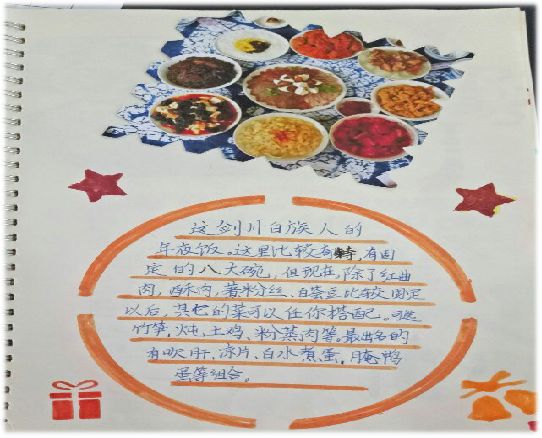 这剑川白族人的
年夜饭。这里比较奇特,有固
定的八大碗,但现在,除了红曲
肉,酥肉、薯粉丝、白芸豆比较固定
以后,其它的菜可以任你搭配。可选
竹笋,炖、土鸡、粉蒸肉等。最出名的
有吹肝、凉片、白水煮蛋,腌鸭
蛋等组合。